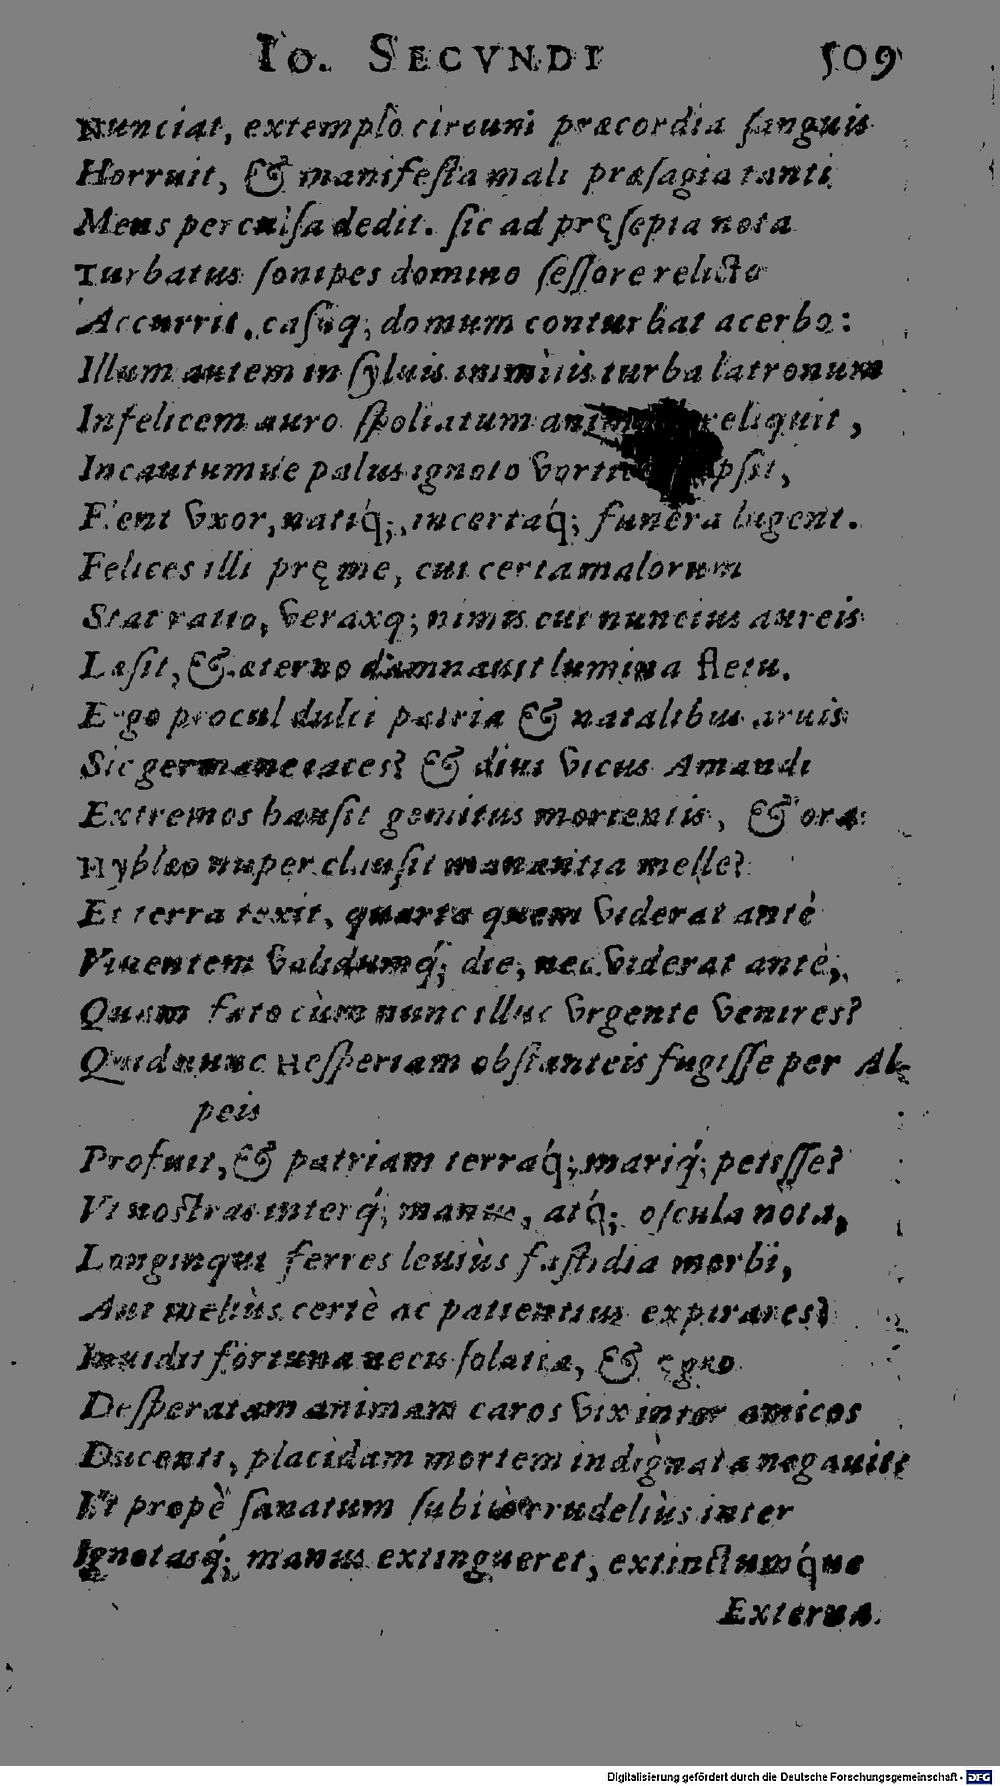 Io. SECVNDI 509
Nunciat, extemplo circum præcordia ſanguis
Horruit, & manifeſta mali præſagia tanti
Mens perculſa dedit. ſic ad pręſepia nota
Turbatus ſonipes domino ſeſſore relicto
Accurrit, caſuq; domum conturbat acerbo:
Illum autem in ſyluis inimitis turba latronum
Infelicem auro ſpoliatum reliquit,
Incautumue palus ignoto
Flent vxor, natiq́;, incertaq́; funera lugent.
Felices illi pręme, cui certa malorum
Stat ratio, veraxq; nimis cui nuncius aureis
Læſit, & æterno damnauit lumina fletu.
Ergo procul dulci patria & natalibus aruis
Sic germane iaces? & diui vicus Amandi
Extremos hauſit gemitus morientis, & ora
Hyblæo nuper clauſit manantia melle?
Et terra texit, quarta quem viderat antè
Viuentem validumq́; die, nec viderat antè,
Quam fato cùm nunc illuc vrgente venires?
Quid nunc Heſperiam obſtanteis fugiſſe per Al-
peis
Profuit, & patriam terraq́; mariq́; petiſſe?
Vt noſtras interq́; manus, atq́; oſcula nota,
Longinqui ferres leuiùs faſtidia morbi,
Aut meliùs certè ac patientius expirares?
Inuidit fortuna necis ſolatia, & ęgro
Deſperatam animam caros vix inter amicos
Ducenti, placidam mortem indignata negauit:
Et propè ſanatum ſubitò crudeliùs inter
Ignotasq́; manus extingueret, extinctumq́ue
Externa.
Digitalisierung gefördert durch die Deutsche Forschungsgemeinschaft - DFG